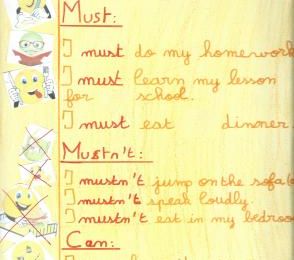 Must:
I must do my homework
I must learn my lesson
for school.
I must eat dinner
Mustn't:
I mustn't jump on the sofa
I mustn't speak loudly.
I mustn't eat in my bedroo
Can: